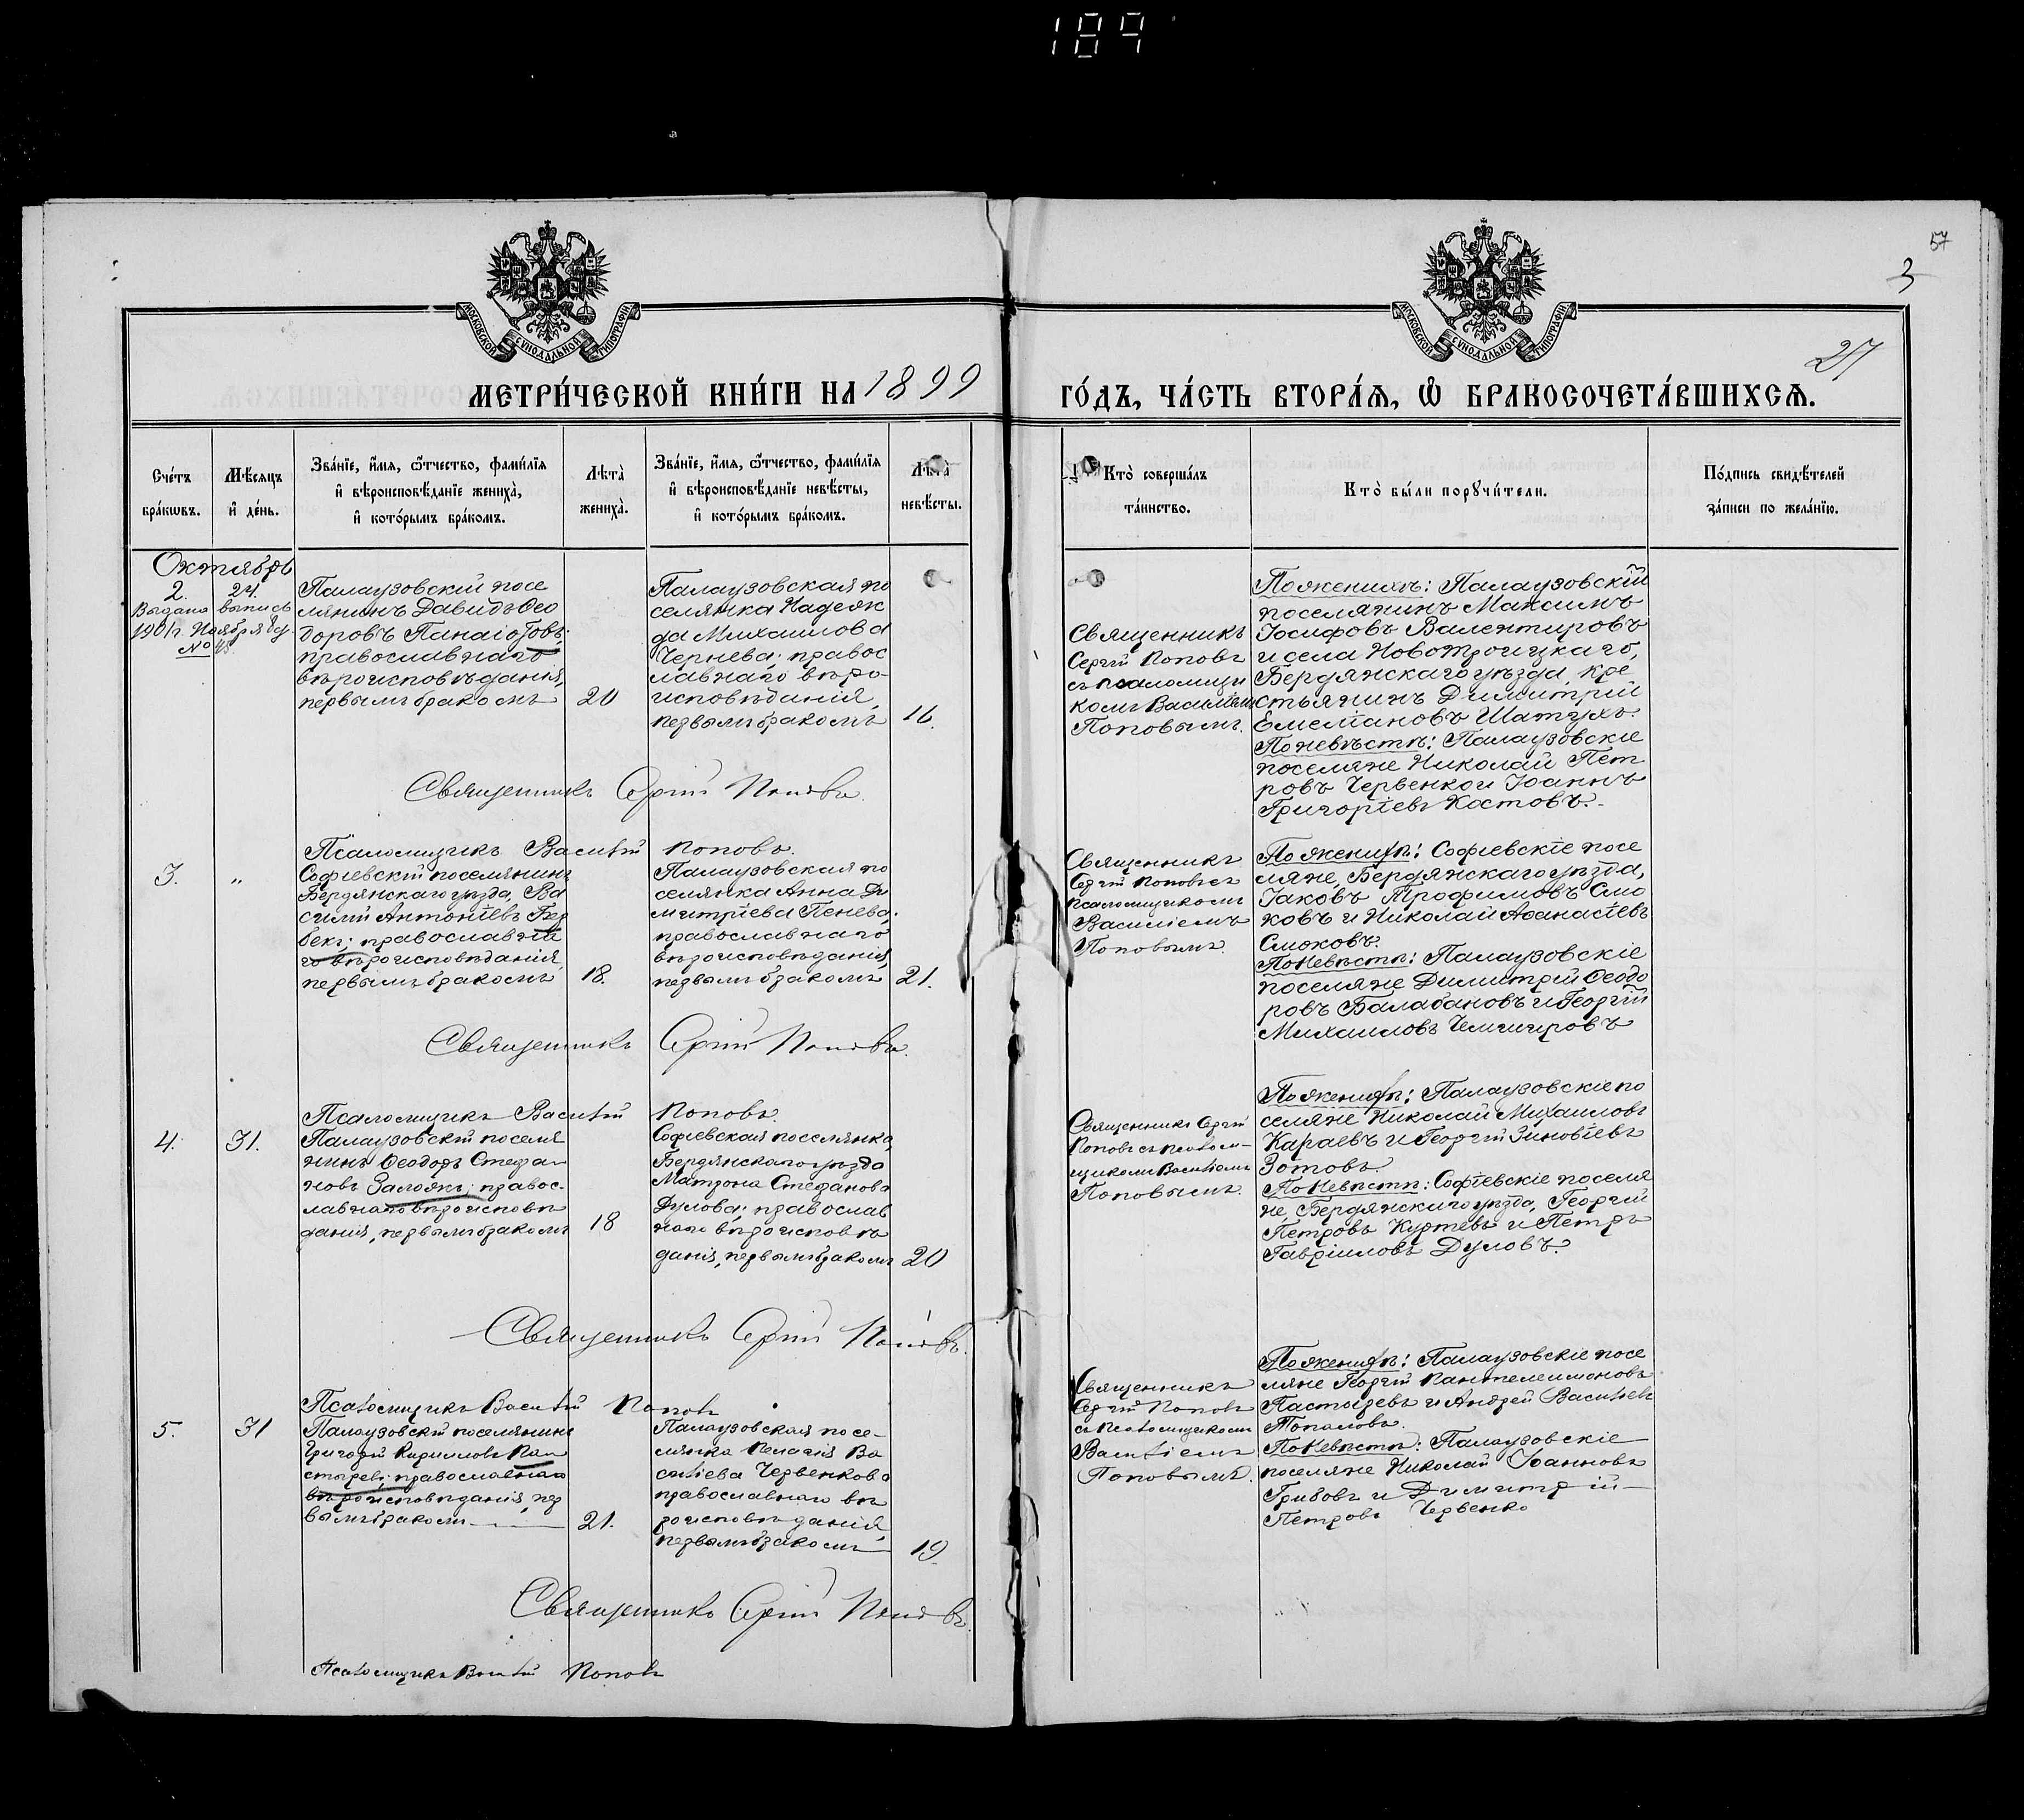 189
57
3
27
МОСКОВСКОЙ СѴНОДАЛЬНОЙ ТИПОГРАФІИ
МОСКОВСКОЙ СѴНОДАЛЬНОЙ ТИПОГРАФІИ
МЕТРИ́ЧЕСКОЙ КНИ́ГИ НА 1899
ГО́ДЪ, ЧА́СТЬ ВТОРА́Ѧ, Ѽ БРАКОСОЧЕТА́ВШИХСѦ.
Сче́тъ
бра́кѡвъ.
Мѣ́сѧцъ
и҆ де́нь.
Зва́нїе, и҆́мѧ, ѻ҆́тчество, фами́лїѧ
и҆ вѣроисповѣ́данїе жениха̀,
и҆ кото́рымъ бра́комъ.
Лѣта̀
жениха̀.
Зва́нїе, и҆́мѧ, ѻ҆́тчество, фами́лїѧ
и҆ вѣроисповѣ́данїе невѣ́сты,
и҆ кото́рымъ бра́комъ.
Лѣта̀
невѣ́сты.
Кто̀ соверша́лъ
та́инство.
Кто̀ бы́ли порꙋчи́тели.
По́дпись свидѣ́телей
за́писи по жела́нїю.
Октябрь
2.
24.
Выдана выпись
1901 г. Ноября 8 д.
№
Палаузовскій посе
лянинъ Давидъ Ѳео
доровъ Панаіотовъ;
православнаго
вѣроисповѣданія,
первымъ бракомъ
20
Палаузовская по
селянка Надеж
да Михаилова
Чернева; правос
лавнаго вѣро-
исповѣданія,
первымъ бракомъ
16.
Священникъ
Сергій Поповъ
съ псаломщи
комъ Василіемъ
Поповымъ.
По женихѣ: Палаузовскій
поселянинъ Максимъ
Іосифовъ Валентировъ
и села Новотроицкаго,
Бердянскаго уѣзда, кре
стьянинъ Димитрій
Емеліановъ Шатухъ.
По невѣстѣ: Палаузовскіе
поселяне Николай Пет
ровъ Червенко и Іоаннъ
Григоріевъ Костовъ.
Священникъ Сергій Поповъ.
Псаломщикъ Василій Поповъ.
3.
"
Софіевскій поселянинъ
Бердянскаго уѣзда, Ва
силій Антоніевъ Бер
бекъ; православна
го вѣроисповѣданія,
первымъ бракомъ
18.
Палаузовская по
селянка Анна Ди
митріева Пенева;
православнаго
вѣроисповѣданія,
первымъ бракомъ
21.
Священникъ
Сергій Поповъ съ
псаломщикомъ
Василіемъ
Поповымъ.
По женихѣ: Софіевскіе посе
ляне, Бердянскаго уѣзда,
Іаковъ Трофимовъ Смо
ковъ и Николай Аѳанасіевъ
Смоковъ.
По невѣстѣ: Палаузовскіе
поселяне Димитрій Ѳеодо
ровъ Балабановъ и Георгій
Михаиловъ Чемшировъ
Священникъ Сергій Поповъ.
Псаломщикъ Василій Поповъ.
4.
31.
Палаузовскій поселя
нинъ Ѳеодоръ Стефа
новъ Заможъ; правос-
лавнаго вѣроисповѣ
данія, первымъ бракомъ
18
Софіевская поселянка,
Бердянскаго уѣзда
Матрона Стефанова
Дулова; православ
наго вѣроисповѣ
данія, первымъ бракомъ
20
Священникъ Сергій
Поповъ съ псалом-
щикомъ Василіемъ
Поповымъ.
По женихѣ: Палаузовскіе по
селяне Николай Михаиловъ
Караевъ и Георгій Зиновіевъ
Зотовъ.
По невѣстѣ: Софіевскіе поселя
не, Бердянскаго уѣзда, Георгій
Петровъ Куртевъ и Петръ
Гавріиловъ Дуловъ.
Священникъ Сергій Поповъ.
Псаломщикъ Василій Поповъ
5.
31
Палаузовскій поселянинъ
Григорій Кирилловъ Пас
стыревъ; православнаго
вѣроисповѣданія, пер
вымъ бракомъ
21.
Палаузовская посе-
лянка Пелагія Ва
силіева Червенкова
православнаго вѣ
роисповѣданія,
первымъ бракомъ
19.
Священникъ
Сергій Поповъ
съ псаломщикомъ
Василіемъ
Поповымъ.
По женихѣ: Палаузовскіе посе
ляне Георгій Пантелеимоновъ
Пастыревъ и Андрей Василіевъ
Топаловъ.
По невѣстѣ: Палаузовскіе
поселяне Николай Іоанновъ
Грибовъ и Димитрій
Петровъ Червенко
Священникъ Сергій Поповъ.
Псаломщикъ Василій Поповъ